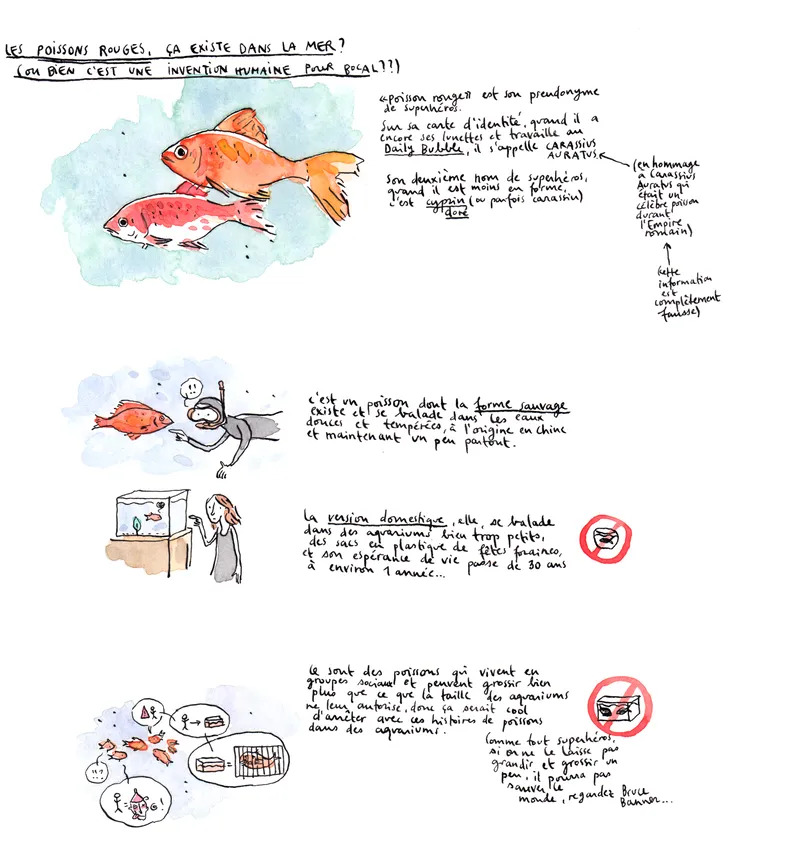 LES POISSONS ROUGES, ÇA EXISTE DANS LA MER?
(OU BIEN C'EST UNE INVENTION HUMAINE POUR BOCAL??)
"Poisson rouge" est son pseudonyme
de superhéros.
Sur sa carte d'identité, quand il a
encore ses lunettes et travaille au
Daily Bubble, il s'appelle CARASSIUS
AURATUS
Son deuxième nom de superhéros,
quand il est moins en forme,
c'est cyprin (ou parfois carassin)
doré
(en hommage
à Carassius
Auratus qui
était un
célèbre poisson
durant
l'Empire
romain)
(cette
information
est
complètement
fausse)
C'est un poisson dont la forme sauvage
existe et se balade dans les eaux
douces et tempérées, à l'origine en Chine
et maintenant un peu partout.
La version domestique, elle, se balade
dans des aquariums bien trop petits,
des sacs en plastique de fêtes foraines,
et son espérance de vie passe de 30 ans
à environ 1 année...
Ce sont des poissons qui vivent en
groupes sociaux et peuvent grossir bien
plus que ce que la taille des aquariums
ne leur autorise, donc ça serait cool
d'arrêter avec ces histoires de poissons
dans des aquariums.
Comme tout superhéros,
si on ne le laisse pas
grandir et grossir un
peu, il pourra pas
sauver le
monde, regardez Bruce
Banner...